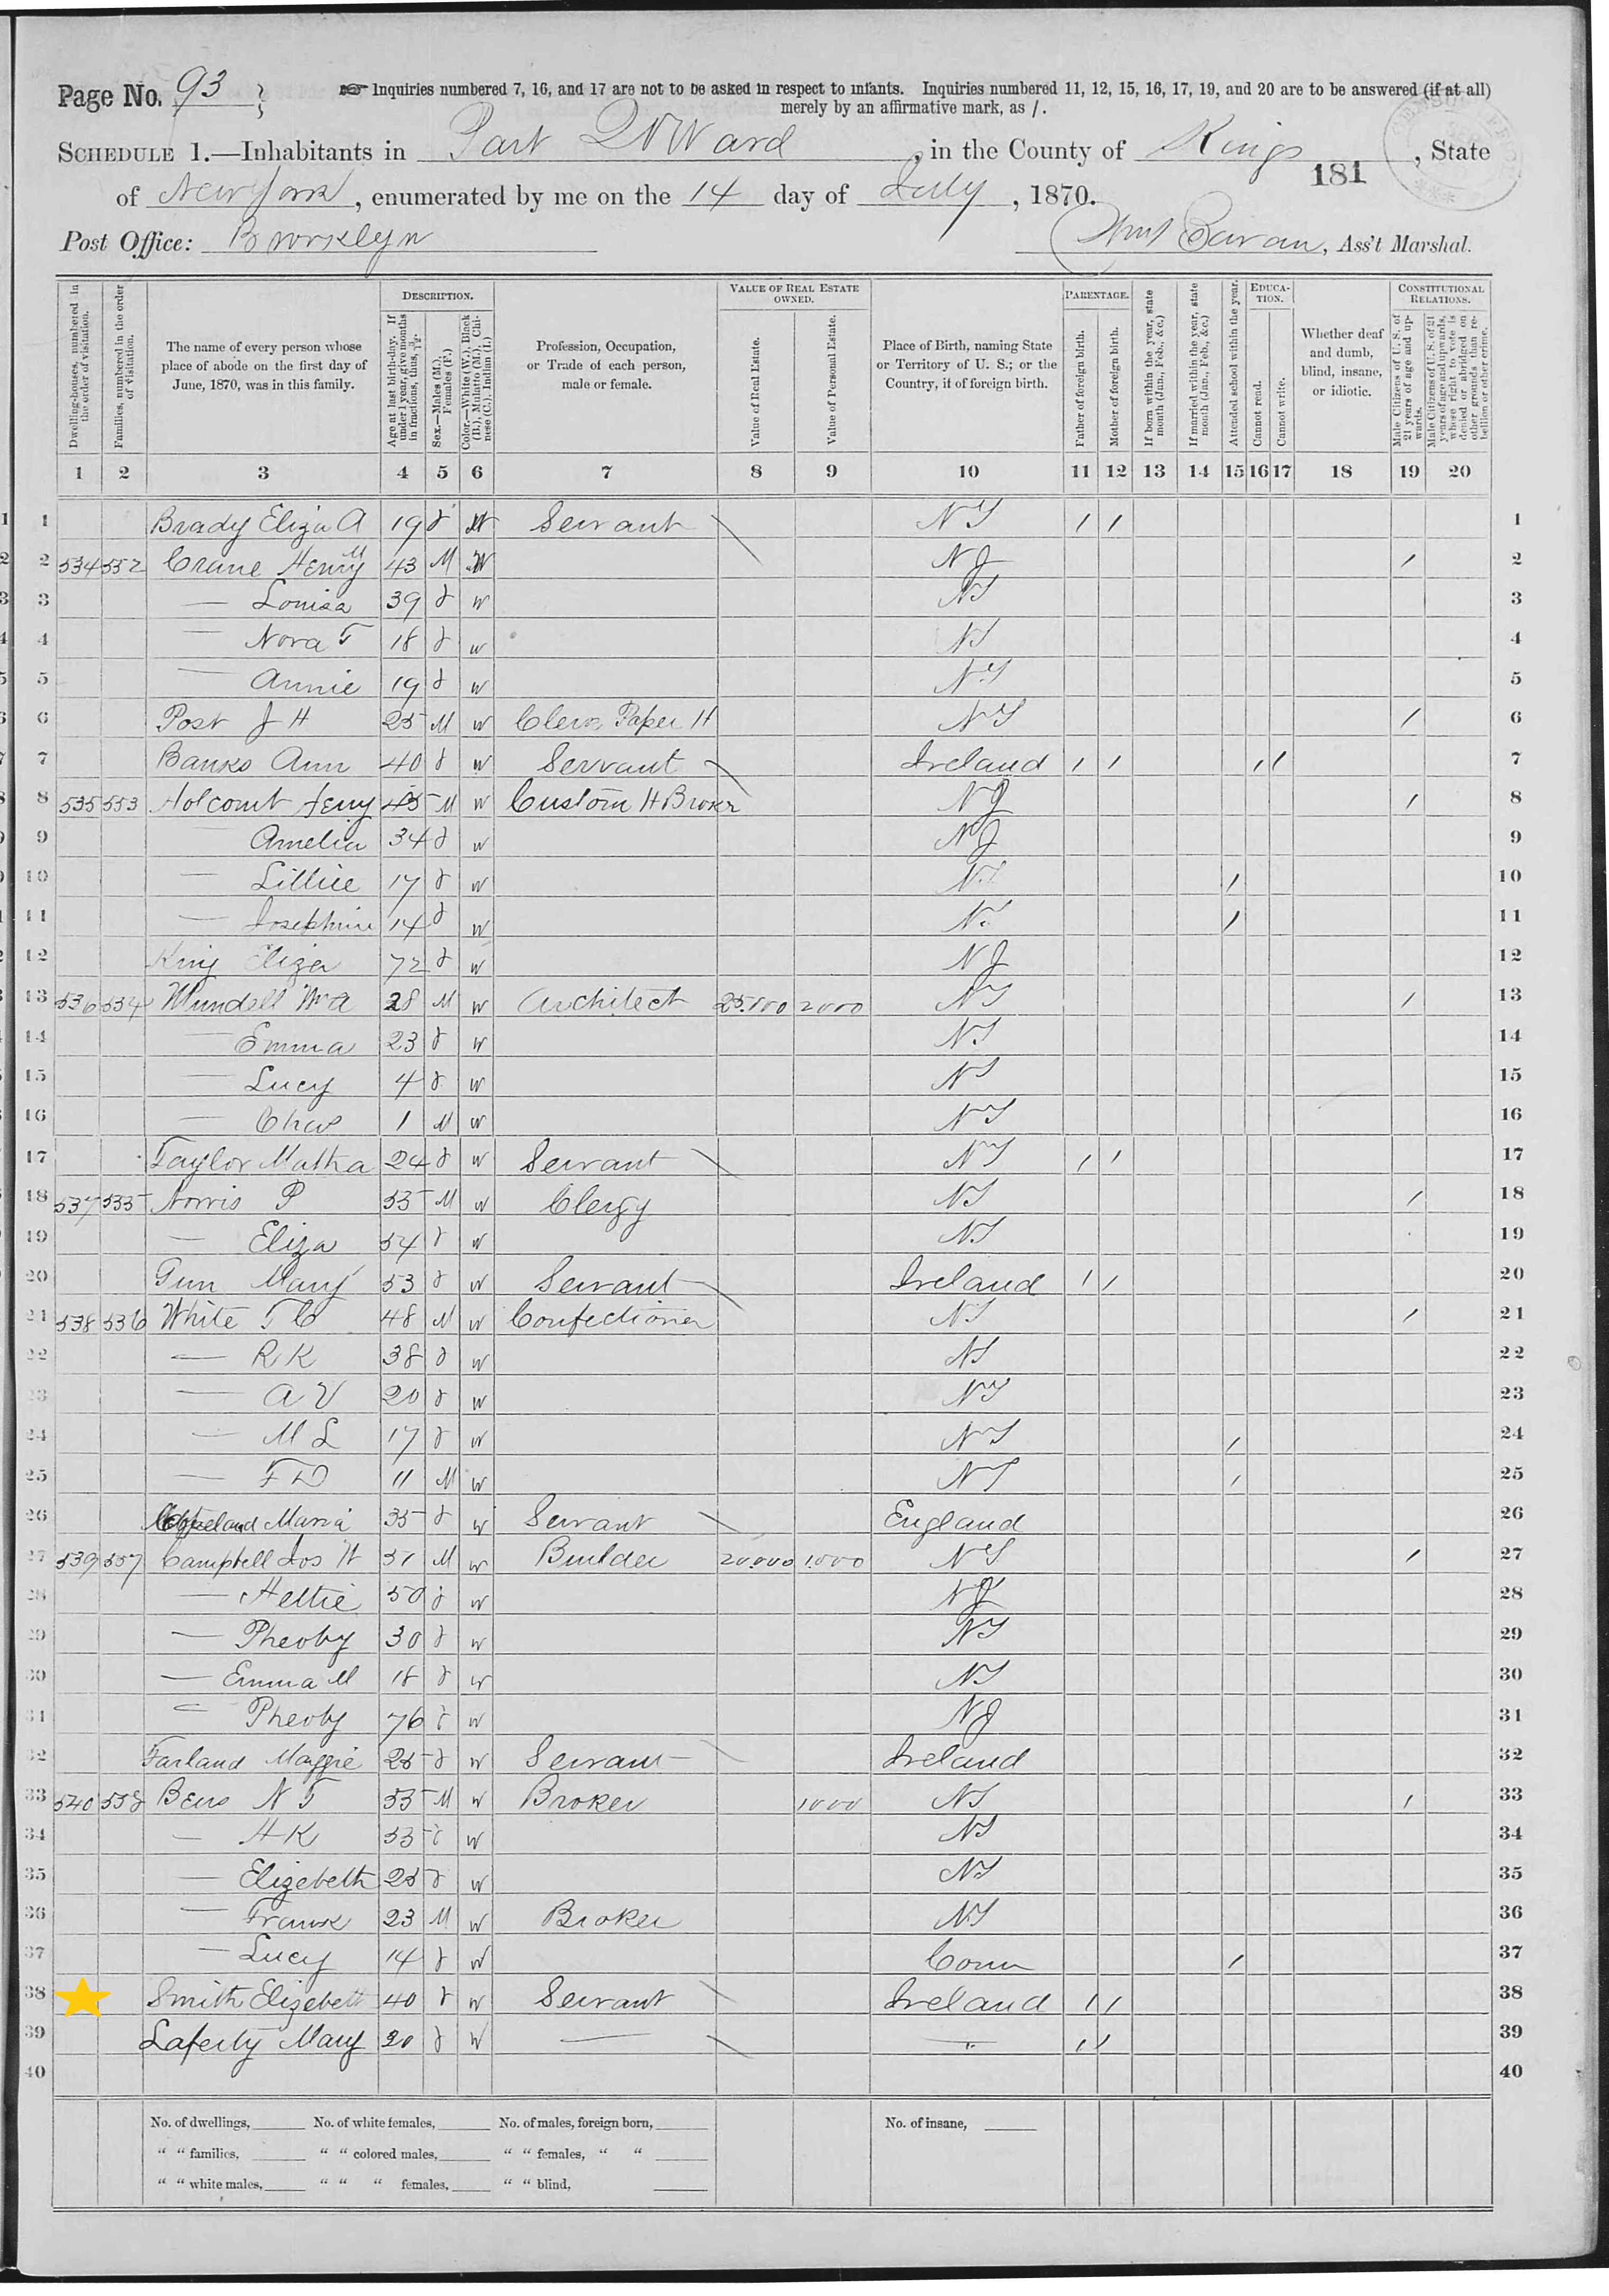 Page No. 93
Inquiries numbered 7, 16, and 17 are not to be asked in respect to infants. Inquiries numbered 11, 12, 15, 16, 17, 19, and 20 are to be answered (if at all)
merely by an affirmative mark, as /.
SCHEDULE 1.—Inhabitants in Part Ward, in the County of Kings, State
181
of New York, enumerated by me on the 14 day of July, 1870.
Post Office: Brooklyn , Ass't Marshal.
Dwelling-houses, numbered in the order of visitation.
Families, numbered in the order of visitation.
The name of every person whose place of abode on the first day of June, 1870, was in this family.
DESCRIPTION.
Age at last birth-day. If under 1 year, give months in fractions, thus, 3/12.
Sex.—Males (M.), Females (F.)
Color.—White (W.), Black (B.), Mulatto (M.), Chinese (C.), Indian (I.)
Profession, Occupation, or Trade of each person, male or female.
VALUE OF REAL ESTATE OWNED.
Value of Real Estate.
Value of Personal Estate.
Place of Birth, naming State or Territory of U. S.; or the Country, if of foreign birth.
PARENTAGE.
Father of foreign birth.
Mother of foreign birth.
If born within the year, state month (Jan., Feb., &c.)
If married within the year, state month (Jan., Feb., &c.)
Attended school within the year.
EDUCATION.
Cannot read.
Cannot write.
Whether deaf and dumb, blind, insane, or idiotic.
CONSTITUTIONAL RELATIONS.
Male Citizens of U. S. of 21 years of age and upwards.
Male Citizens of U. S. of 21 years of age and upwards, whose right to vote is denied or abridged on other grounds than rebellion or other crime.
1 2 3 4 5 6 7 8 9 10 11 12 13 14 15 16 17 18 19 20
1 Brady Eliza A 19 F W Servant NY / / 1
2 534 552 Crane Henry M 43 M W NJ / 2
3 — Louisa 39 F W NY 3
4 — Nora T 18 F W NY 4
5 — Annie 19 F W NY 5
6 Post J H 25 M W Clerk Paper H NY / 6
7 Banks Ann 40 F W Servant Ireland / / / / 7
8 535 553 Holcomb Henry 45 M W Custom H Broker NJ / 8
9 Amelia 34 F W NJ 9
10 — Lillie 17 F W NY / 10
11 — Josephine 14 F W / 11
12 King Eliza 72 F W NJ 12
13 536 554 Mundell Wm A 28 M W Architect 25.000 2000 NY / 13
14 — Emma 23 F W NY 14
15 — Lucy 4 F W NY 15
16 — Chas 1 M W NY 16
17 Taylor Matha 24 F W Servant NY / / 17
18 537 535 Norris P 55 M W Clergy NY / 18
19 — Eliza 54 F W NY 19
20 Gun Mary 53 F W Servant Ireland / / 20
21 538 536 White T C 48 M W Confectioner NY / 21
22 — R K 38 F W NY 22
23 — A V 20 F W NY 23
24 — M L 17 F W NY / 24
25 — F D 11 M W NY / 25
26 Copeland Maria 35 F W Servant England 26
27 539 557 Campbell Jos W 51 M W Builder 20.000 1.000 NY / 27
28 — Hettie 50 F W NJ 28
29 — Pheoby 30 F W NY 29
30 — Emma M 18 F W NY 30
31 — Pheoby 76 F W NJ 31
32 Farland Maggie 25 F W Servant Ireland 32
33 540 558 Beers N T 55 M W Broker 1000 NY / 33
34 — H K 53 F W NY 34
35 — Elizebeth 25 F W NY 35
36 — Frank 23 M W Broker NY 36
37 — Lucy 14 F W Conn / 37
38 Smith Elizebett 40 F W Servant Ireland / / 38
39 Laferty Mary 20 F W — " / / 39
40 40
No. of dwellings, No. of white females, No. of males, foreign born, No. of insane,
" " families, " " colored males, " " females, " "
" " white males, " " " females, " " blind,